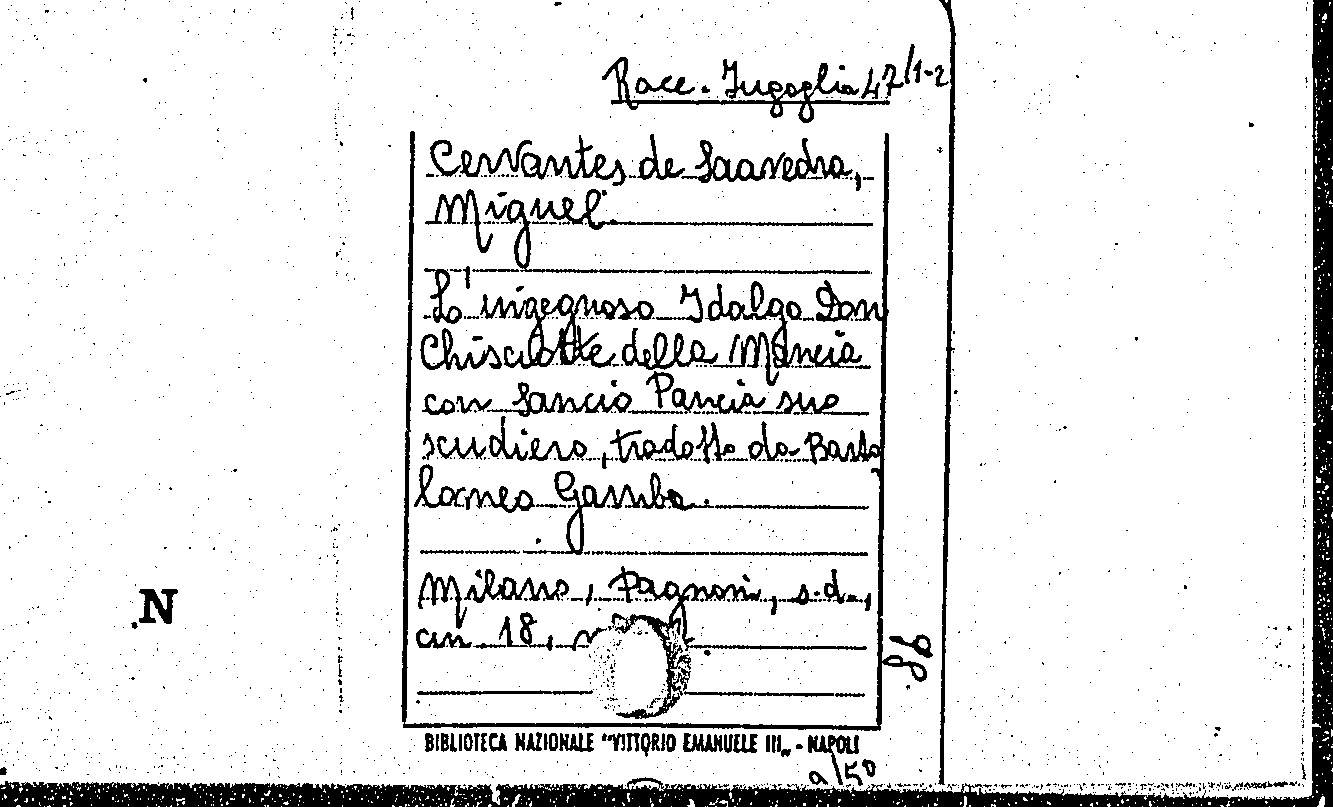 Racc. Jugoglia 47/1-2
Cervantes de Saavedra,
Miguel.
L'ingegnoso Idalgo Don
Chisciotte della Mancia
con Sancio Pancia suo
scudiero, tradotto da Barto
lomeo Gamba.
Milano, Pagnoni, s.d.,
cm. 18,
N
BIBLIOTECA NAZIONALE "VITTORIO EMANUELE III„ - NAPOLI
a/50